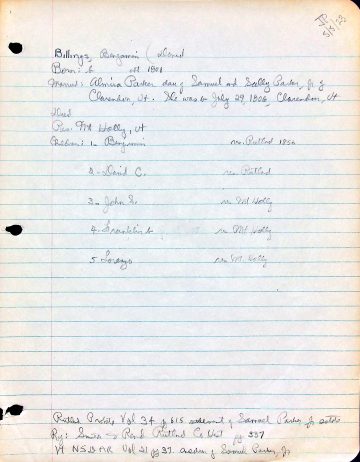 Billings, Benjamin (David
Born: b 1801
Married: Almira Parker dau of Samuel and Sally Parker, jr. of
Clarendon, Vt. She was b. July 29, 1806, Clarendon, Vt.
Died
Res: Mt Holly, Vt
Children: 1. Benjamin res. Rutland 1856
2. David C. res. Rutland
3. John S. res Mt Holly
4. Franklin b. res Mt Holly
5 Lorenzo res Mt. Holly
Rutland Probate Vol 34 p 615 settlement of Samuel Parker Jr estate
Ry: Smith & Rand Rutland Co Hist pg 337
Vt NSDAR Vol 21 pg 37. of Samuel Parker, Jr